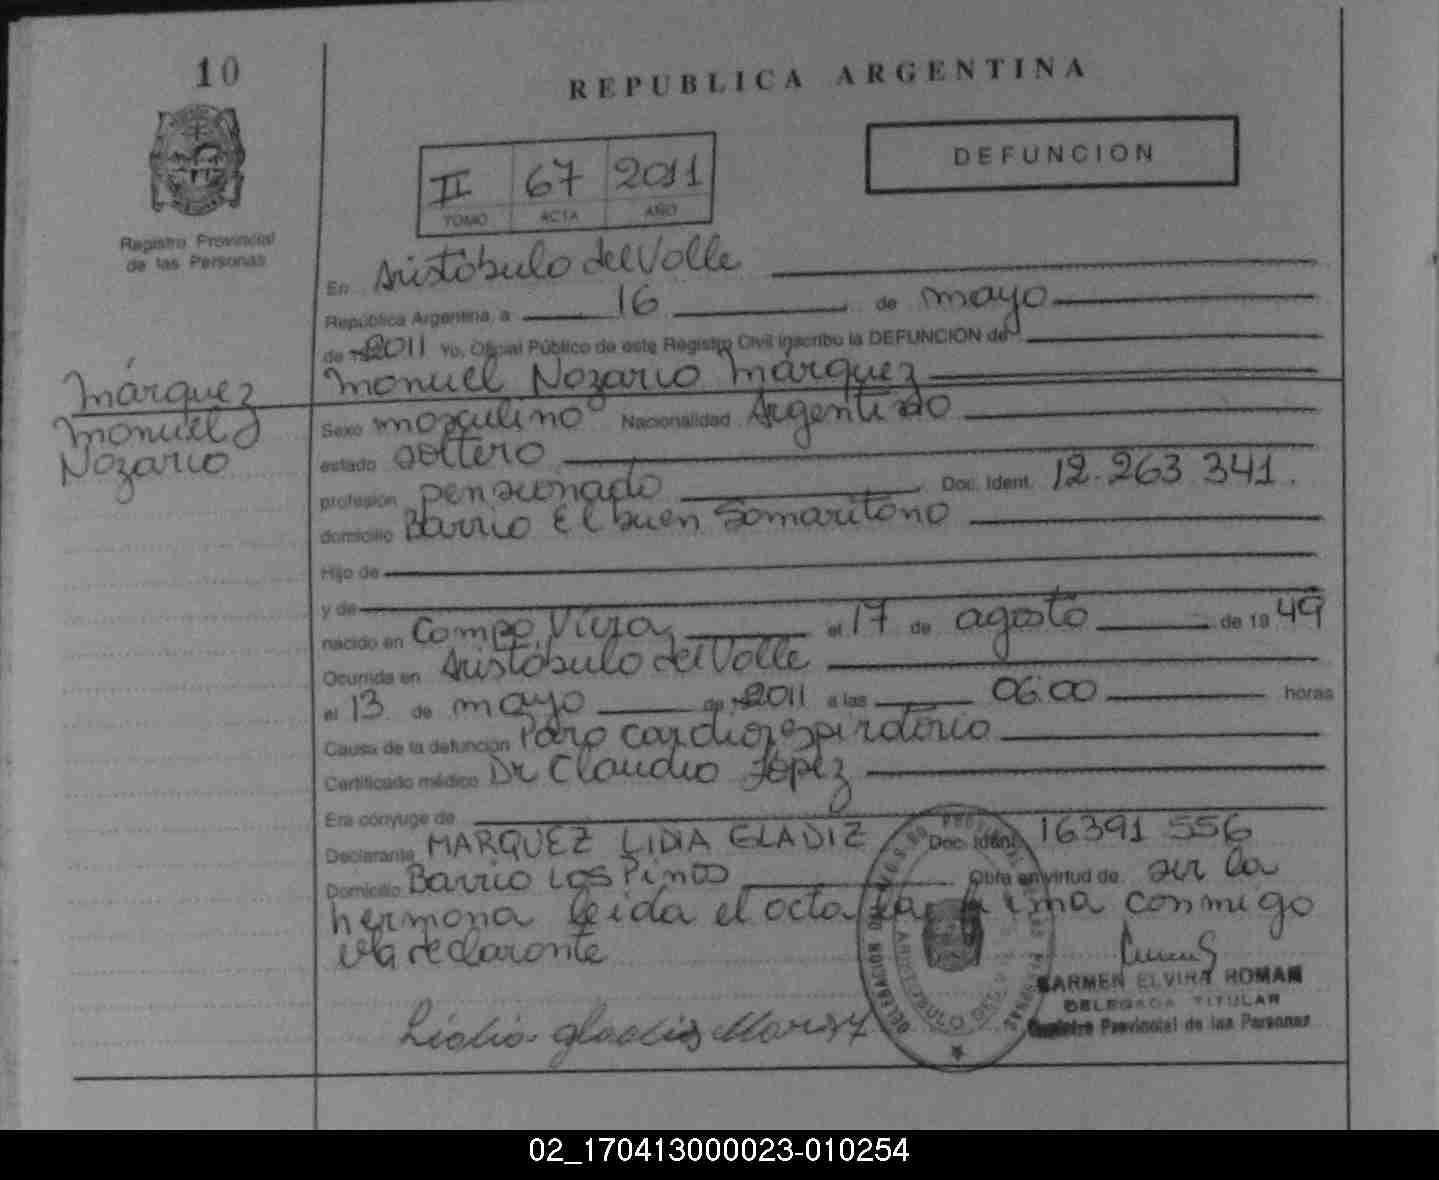 10
REPUBLICA ARGENTINA
DEFUNCION
II 67 2011
TOMO ACTA AÑO
Registro Provincial
de las Personas
En Aristóbulo del Valle
República Argentina, a 16 de mayo
de 2011 Yo, Oficial Público de este Registro Civil inscribo la DEFUNCION de
Manuel Nazario Márquez
Márquez
Manuel
Nazario
Sexo masculino Nacionalidad Argentino
estado soltero
profesión pensionado Doc. Ident. 12.263 341.
domicilio Barrio El buen Samaritano
Hijo de
y de
nacido en Campo Viera el 17 de agosto de 19 49
Ocurrida en Aristóbulo del Valle
el 13 de mayo de 2011 a las 06:00 horas
Causa de la defunción Paro cardiorespiratorio
Certificado médico Dr Claudio López
Era cónyuge de
Declarante MARQUEZ LIDIA GLADIZ Doc. Ident. 16391 556
Domicilio Barrio Los Pinos Obra en virtud de ser la
hermana leida el acta la firma conmigo
la declarante
CARMEN ELVIRA ROMAN
DELEGADA TITULAR
Registro Provincial de las Personas
Lidia gladis
02_170413000023-010254